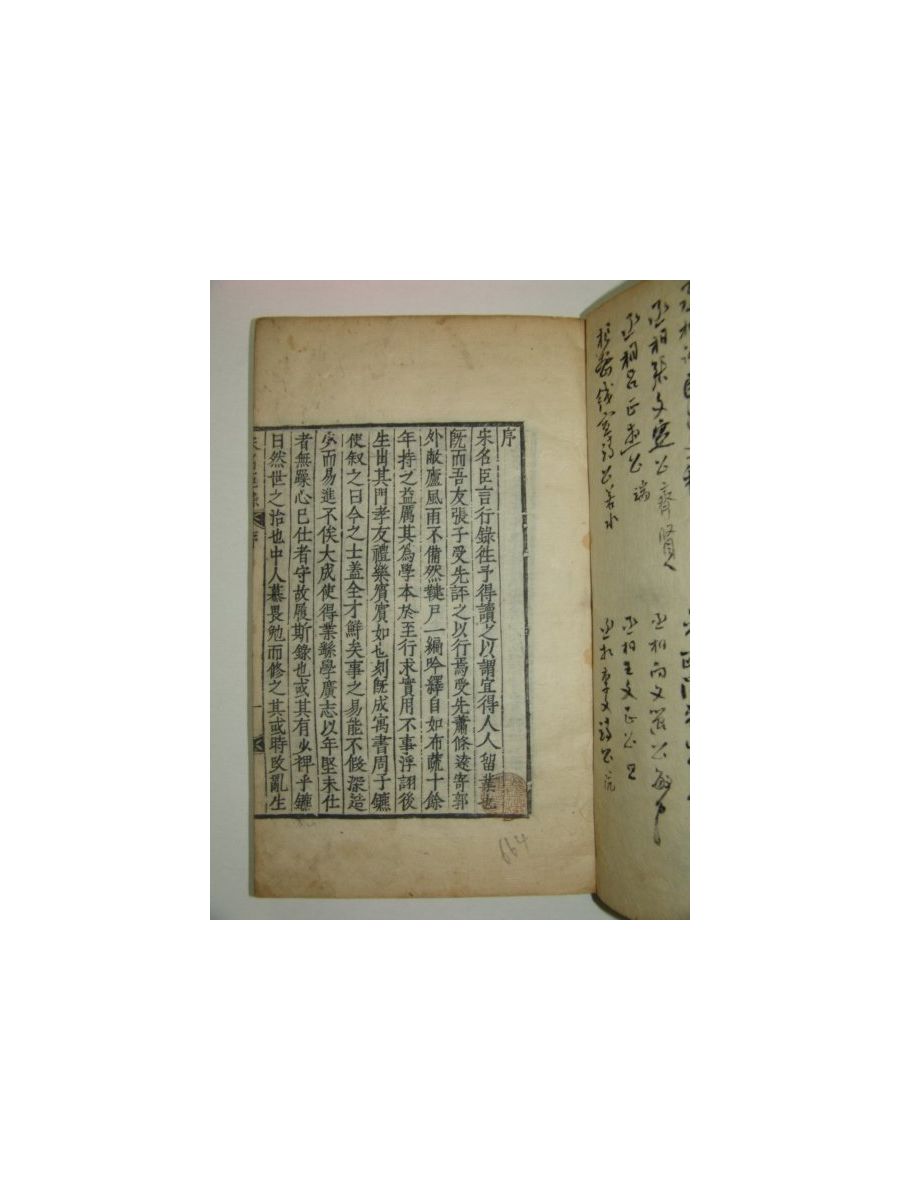 丞相張文定公齊賢
丞相呂正惠公端
樞密錢宣靖公若水
丞相向文簡公敏中
丞相王文正公旦
丞相李文靖公沆
序
宋名臣言行錄徃予得讀之以謂宜得人人留葉也
旣而吾友張子受先評之以行焉受先蕭條遠寄郭
外敝廬風雨不備然鍵戶一編吟繹自如布蔬十餘
年持之益厲其為學本於至行求實用不事浮詡後
生出其門孝友禮樂賓賓如也刻旣成寓書周子鑣
使叙之曰今之士盖全才鮮矣事之易能不假深造
少而易進不俟大成使得業繇學廣志以年堅未仕
者無躁心已仕者守故履斯錄也或其有少裨乎鑣
曰然世之治也中人慕畏勉而修之其或時政亂生
序
一
664